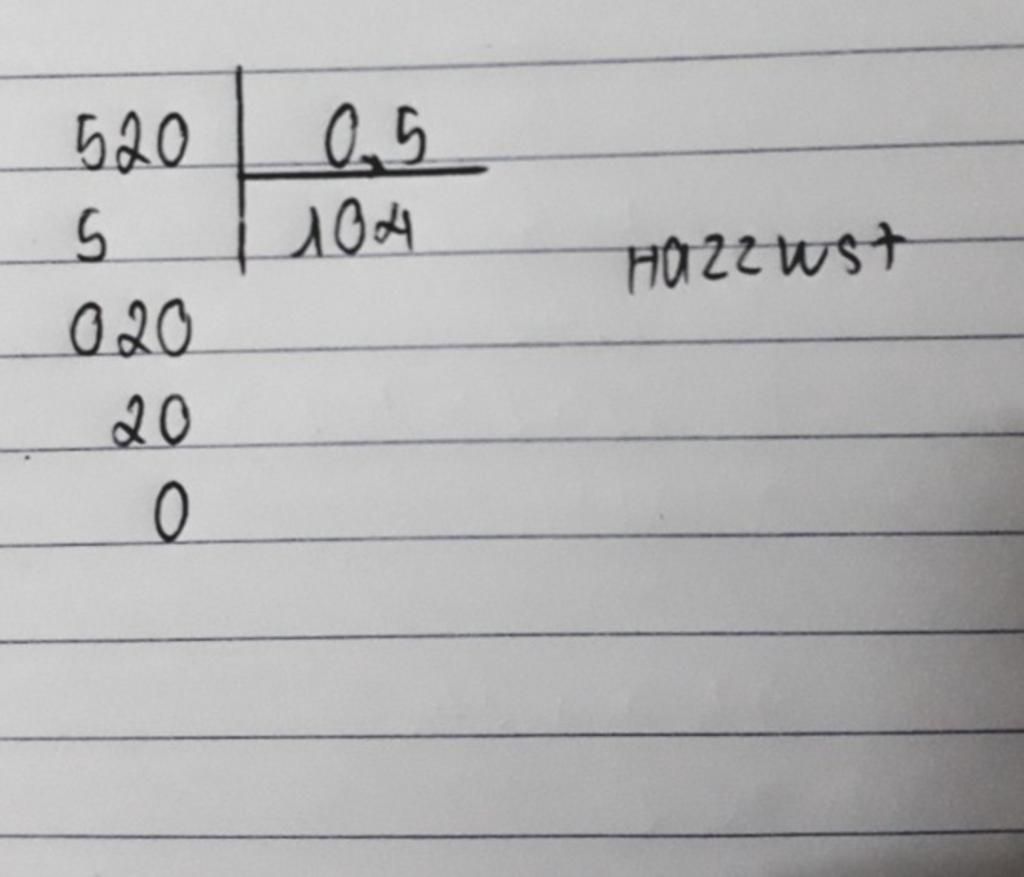 520 0,5
5 104
HAZZWST
020
20
0